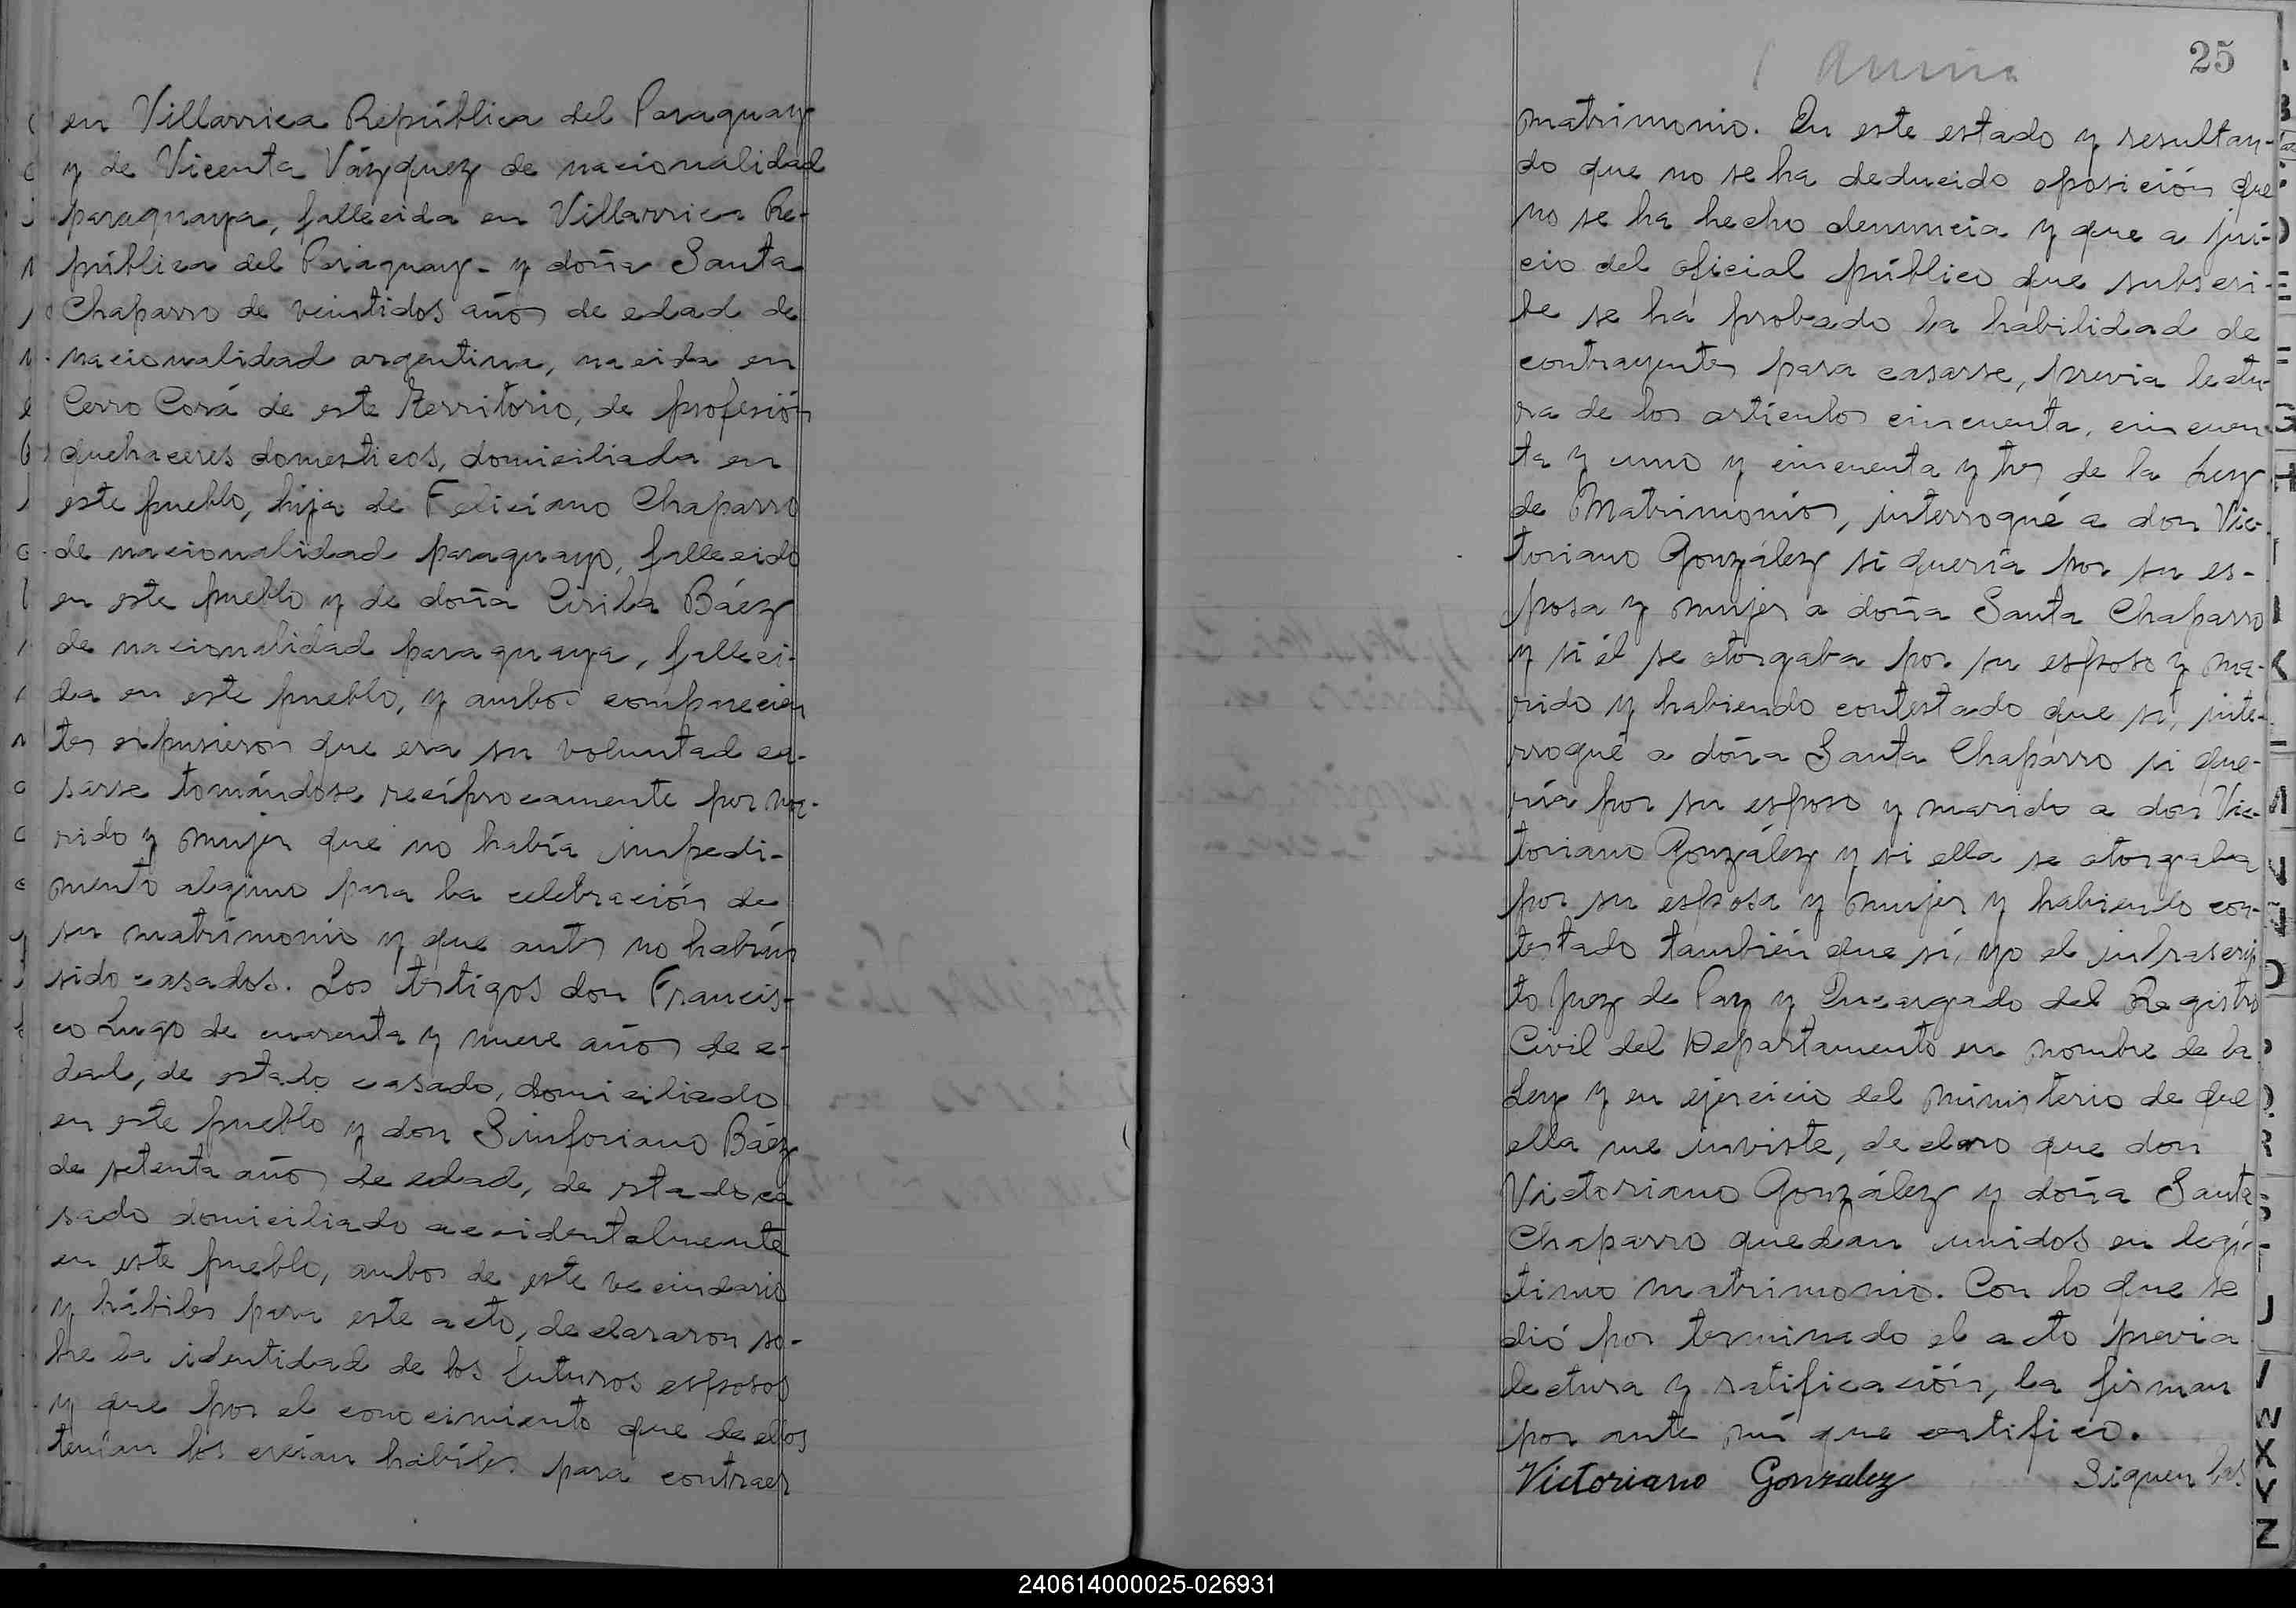 en Villarrica República del Paraguay
y de Vicenta Vázquez de nacionalidad
paraguaya, fallecida en Villarrica Re-
pública del Paraguay - y doña Santa
Chaparro de veintidos años de edad de
nacionalidad argentina, nacida en
Cerro Corá de este Territorio, de profesión
quehaceres domesticos, domiciliada en
este pueblo, hija de Feliciano Chaparro
de nacionalidad paraguayo, fallecido
en este pueblo y de doña Cirila Báez
de nacionalidad paraguaya, falleci-
da en este pueblo, y ambos comparecien
tes expusieron que era su voluntad ca-
sarse tomándose recíprocamente por ma-
rido y mujer que no había impedi-
mento alguno para la celebración de
su matrimonio y que antes no habían
sido casados. Los testigos don Francis-
co Lugo de cuarenta y nueve años de e-
dad, de estado casado, domiciliado
en este pueblo y don Sinforiano Báez
de setenta años de edad, de estado ca
sado domiciliado accidentalmente
en este pueblo, ambos de este vecindario
y hábiles para este acto, declararon so-
bre la identidad de los futuros esposos
y que por el conocimiento que de ellos
tenían los creían hábiles para contraer
25
matrimonio. En este estado y resultan-
do que no se ha deducido oposición que
no se ha hecho denuncia y que a jui-
cio del oficial público que subscri-
be se há probado la habilidad de
contrayentes para casarse, previa lectu-
ra de los artículos cincuenta, cincuen-
ta y uno y cincuenta y tres de la Ley
de Matrimonio, interroqué a don Vic-
toriano González si quería por su es-
posa y mujer a doña Santa Chaparro
y si él se otorgaba por su esposo y ma-
rido y habiendo contestado que sí, inte-
rroqué a doña Santa Chaparro si que-
ría por su esposo y marido a don Vic-
toriano González y si ella se otorgaba
por su esposa y mujer y habiendo con-
testado también que sí, yo el infrascrip
to Juez de Paz y Encargado del Registro
Civil del Departamento en nombre de la
Ley y en ejercicio del ministerio de que
ella me inviste, declaro que don
Victoriano González y doña Santa
Chaparro quedan unidos en legí-
timo matrimonio. Con lo que se
dió por terminado el acto previa
lectura y ratificación, la firman
por ante mí que certifico.
Victoriano Gonzalez Siguen las
240614000025-026931